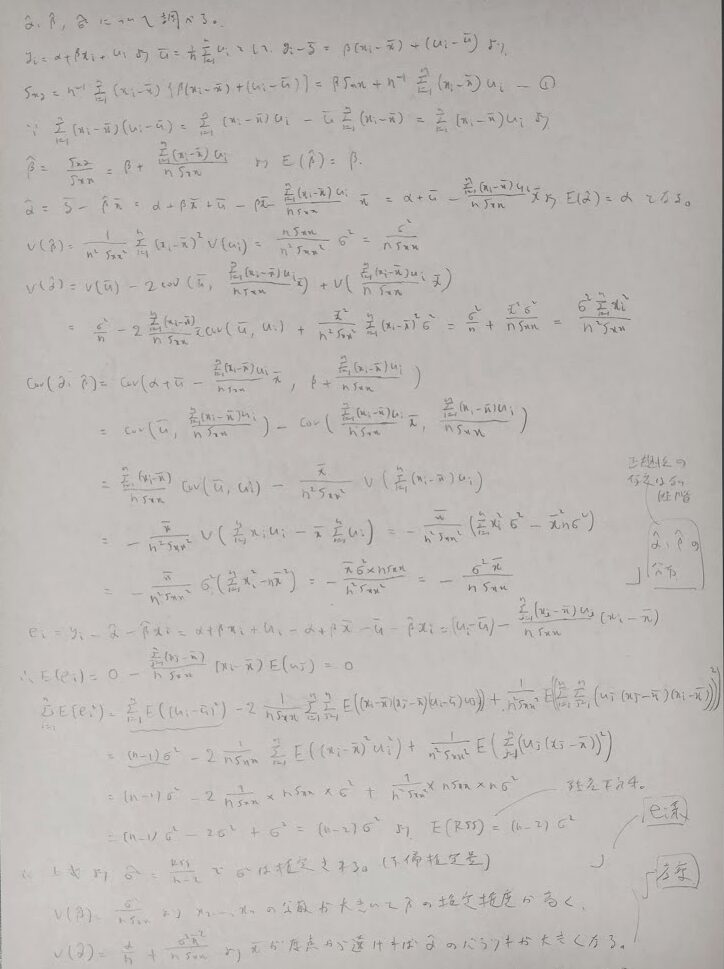 α̂, β̂, σ̂ について調べる。
yᵢ = α+βxᵢ+uᵢ より ū = 1/n Σᵢ₌₁ⁿ uᵢ として yᵢ - ȳ = β(xᵢ-x̄) + (uᵢ-ū) より,
Sxy = n⁻¹ Σᵢ₌₁ⁿ (xᵢ-x̄){β(xᵢ-x̄)+(uᵢ-ū)} = βSxx + n⁻¹ Σᵢ₌₁ⁿ (xᵢ-x̄)uᵢ — ①
∵ Σᵢ₌₁ⁿ (xᵢ-x̄)(uᵢ-ū) = Σᵢ₌₁ⁿ (xᵢ-x̄)uᵢ - ū Σᵢ₌₁ⁿ (xᵢ-x̄) = Σᵢ₌₁ⁿ (xᵢ-x̄)uᵢ より
β̂ = Sxy/Sxx = β + Σᵢ₌₁ⁿ(xᵢ-x̄)uᵢ/nSxx より E(β̂) = β.
α̂ = ȳ - β̂x̄ = α+βx̄+ū - βx̄ - Σᵢ₌₁ⁿ(xᵢ-x̄)uᵢ/nSxx x̄ = α+ū - Σᵢ₌₁ⁿ(xᵢ-x̄)uᵢ/nSxx x̄ より E(α̂) = α となる。
V(β̂) = 1/n²Sxx² Σᵢ₌₁ⁿ (xᵢ-x̄)² V(uᵢ) = nSxx/n²Sxx² σ² = σ²/nSxx
V(α̂) = V(ū) - 2cov(ū, Σᵢ₌₁ⁿ(xᵢ-x̄)uᵢ/nSxx x̄) + V(Σᵢ₌₁ⁿ(xᵢ-x̄)uᵢ/nSxx x̄)
= σ²/n - 2 Σᵢ₌₁ⁿ(xᵢ-x̄)/nSxx x̄ cov(ū, uᵢ) + x̄²/n²Sxx² Σᵢ₌₁ⁿ (xᵢ-x̄)²σ² = σ²/n + x̄²σ²/nSxx = σ² Σᵢ₌₁ⁿ xᵢ²/n²Sxx
Cov(α̂, β̂) = Cov(α+ū - Σᵢ₌₁ⁿ(xᵢ-x̄)uᵢ/nSxx x̄, β + Σᵢ₌₁ⁿ(xᵢ-x̄)uᵢ/nSxx)
= cov(ū, Σᵢ₌₁ⁿ(xᵢ-x̄)uᵢ/nSxx) - cov(Σᵢ₌₁ⁿ(xᵢ-x̄)uᵢ/nSxx x̄, Σᵢ₌₁ⁿ(xᵢ-x̄)uᵢ/nSxx)
= Σᵢ₌₁ⁿ(xᵢ-x̄)/nSxx cov(ū, uᵢ) - x̄/n²Sxx² V(Σᵢ₌₁ⁿ(xᵢ-x̄)uᵢ)
= - x̄/n²Sxx² V(Σᵢ₌₁ⁿ xᵢuᵢ - x̄ Σᵢ₌₁ⁿ uᵢ) = - x̄/n²Sxx² (Σᵢ₌₁ⁿ xᵢ²σ² - x̄²nσ²)
= - x̄/n²Sxx² σ²(Σᵢ₌₁ⁿ xᵢ² - nx̄²) = - x̄σ²×nSxx/n²Sxx² = - σ²x̄/nSxx
α̂, β̂の
分布
eᵢ = yᵢ - α̂ - β̂xᵢ = α+βxᵢ+uᵢ - α+βx̄ - ū - β̂xᵢ = (uᵢ-ū) - Σⱼ₌₁ⁿ(xⱼ-x̄)uⱼ/nSxx (xᵢ-x̄)
∴ E(eᵢ) = 0 - Σⱼ₌₁ⁿ(xⱼ-x̄)/nSxx (xᵢ-x̄)E(uⱼ) = 0
Σᵢ₌₁ⁿ E(eᵢ²) = Σᵢ₌₁ⁿ E((uᵢ-ū)²) - 2 1/nSxx Σᵢ₌₁ⁿ Σⱼ₌₁ⁿ E((xᵢ-x̄)(xⱼ-x̄)(uᵢ-ū)uⱼ) + 1/n²Sxx² E(Σᵢ₌₁ⁿ(Σⱼ₌₁ⁿ(uⱼ(xⱼ-x̄)(xᵢ-x̄)))²)
= (n-1)σ² - 2 1/nSxx Σᵢ₌₁ⁿ E((xᵢ-x̄)²uᵢ²) + 1/n²Sxx² E(Σⱼ₌₁ⁿ(uⱼ(xⱼ-x̄))²)
= (n-1)σ² - 2 1/nSxx × nSxx × σ² + 1/n²Sxx² × nSxx × nσ²
= (n-1)σ² - 2σ² + σ² = (n-2)σ² より E(RSS) = (n-2)σ²
残差平方和。
eᵢ系
∴ 以上より, σ̂² = RSS/n-2 で σは推定される。(不偏推定量)
V(β̂) = σ²/nSxx より x₁…xₙの分散が大きいとβの推定精度が高く,
V(α̂) = σ²/n + σ²x̄²/nSxx より x̄が原点から遠ければα̂のバラツキが大きくなる。